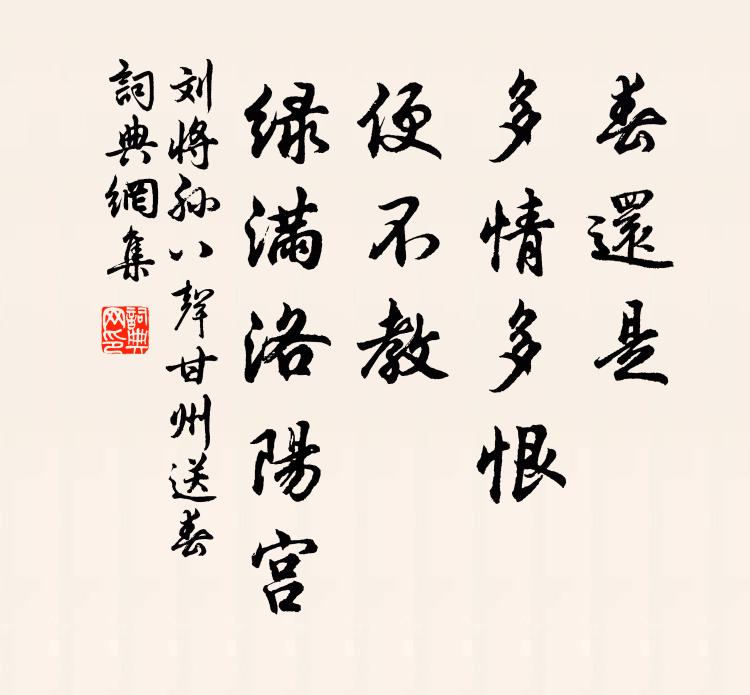 春還是
多情多恨
便不教
緑滿洛陽宫
刘將孫八聲甘州送春
詞典網集
詞典
网印